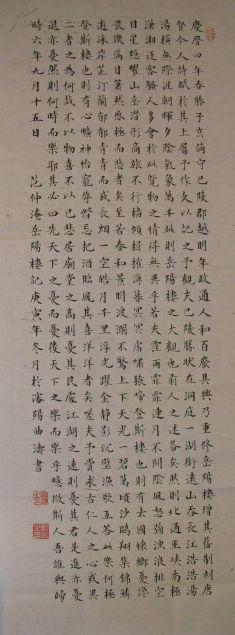 慶曆四年春滕子京謫守巴陵郡越明年政通人和百廢具興乃重修岳陽樓增其舊制刻唐
賢今人詩賦於其上屬予作文以記之予觀夫巴陵勝狀在洞庭一湖銜遠山吞長江浩浩湯
湯橫無際涯朝暉夕陰氣象萬千此則岳陽樓之大觀也前人之述備矣然則北通巫峽南極
瀟湘遷客騷人多會於此覽物之情得無異乎若夫霪雨霏霏連月不開陰風怒號濁浪排空
日星隱曜山岳潛形商旅不行檣傾楫摧薄暮冥冥虎嘯猿啼登斯樓也則有去國懷鄉憂讒
畏譏滿目蕭然感極而悲者矣至若春和景明波瀾不驚上下天光一碧萬頃沙鷗翔集錦鱗
游泳岸芷汀蘭郁郁青青而或長煙一空皓月千里浮光躍金靜影沉璧漁歌互答此樂何極
登斯樓也則有心曠神怡寵辱偕忘把酒臨風其喜洋洋者矣嗟夫予嘗求古仁人之心或異
二者之為何哉不以物喜不以己悲居廟堂之高則憂其民處江湖之遠則憂其君是進亦憂
退亦憂然則何時而樂耶其必曰先天下之憂而憂後天下之樂而樂乎噫微斯人吾誰與歸
時六年九月十五日 范仲淹岳陽樓記庚寅年冬月於瀋陽曲濤書